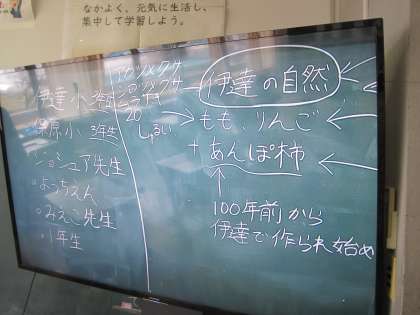 なかよく、元気に生活し、
集中して学習しよう。
伊達小 3年生
保原小 3年生
ジョシュア先生
・よっちえん
・みえこ先生
・1年生
20
しゅるい
伊達の自然
もも、りんご
+あんぽ柿
100年前から
伊達で作られ始め